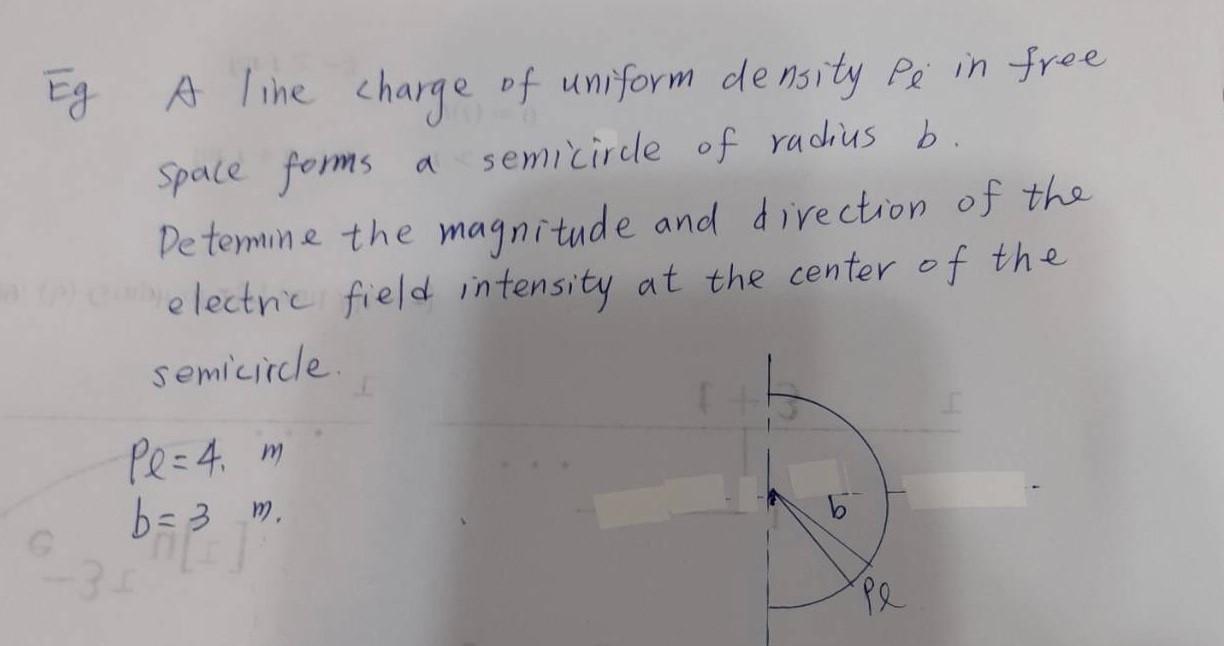 Eg A line charge of uniform density ρℓ in free
space forms a semicircle of radius b.
Determine the magnitude and direction of the
electric field intensity at the center of the
semicircle.
ρℓ = 4. m
b = 3 m.
b
ρℓ